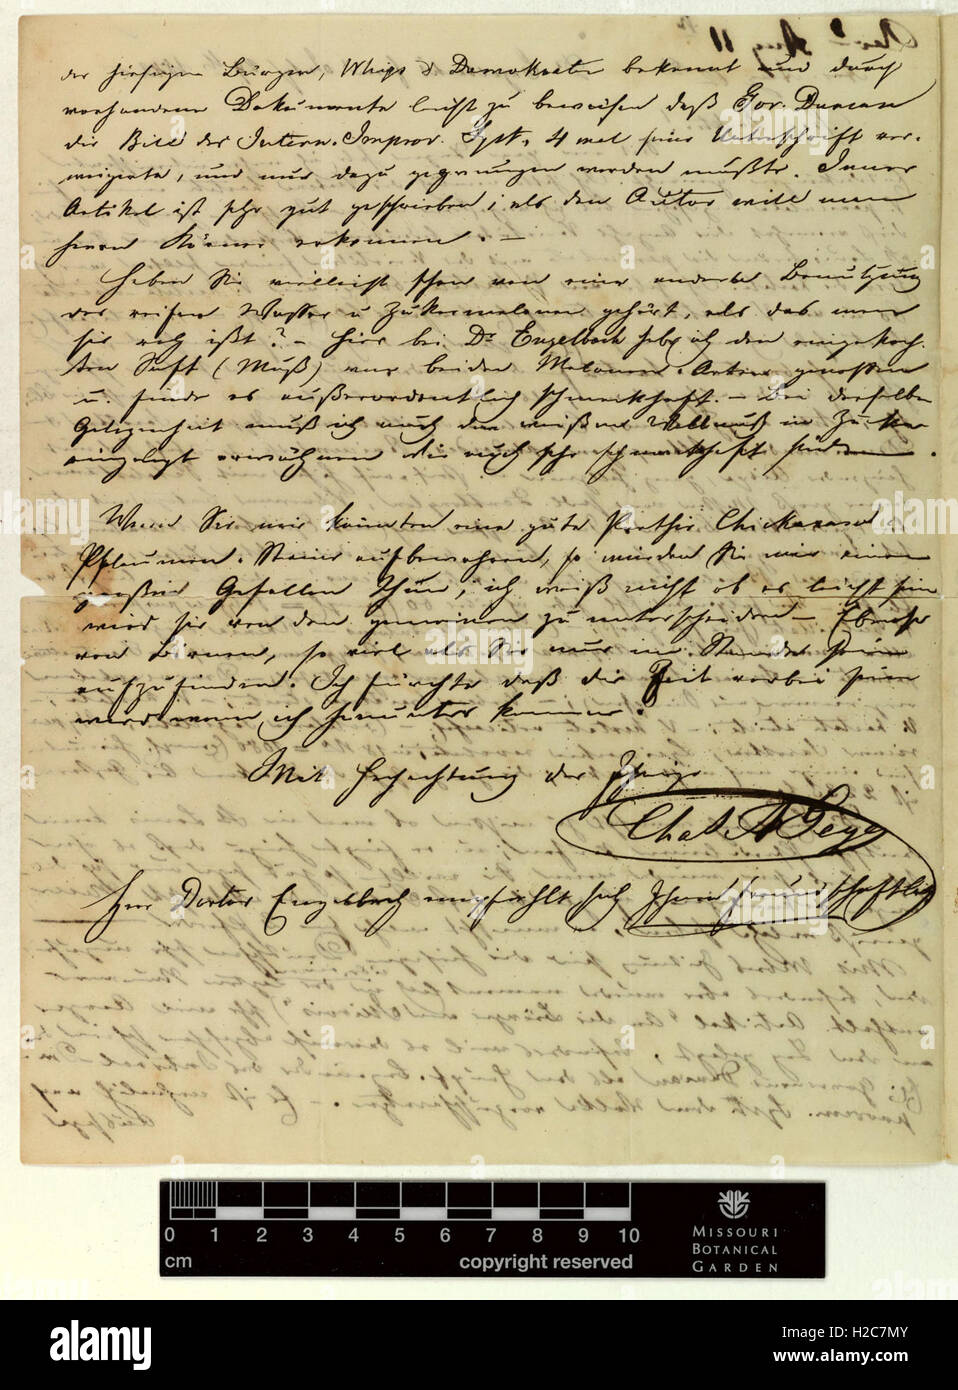 Rec.d Aug 11
der hiesigen Bürger, Whigs & Demokraten bekannt und durch
vorhandene Dokumente leicht zu beweisen daß Gov. Duncan
die Bill des Intern. Improv. Syst. 4 mal seine Unterschrift ver-
weigerte, und nur dazu gezwungen werden mußte. Jener
Artikel ist sehr gut geschrieben; als den Autor will man
Herrn Körner erkennen. —
Haben Sie vielleicht schon von einer anderen Benutzung
der reifen Wasser u Zukermelonen gehört, als das man
sie roh ißt? – Hier bei Dr Engelbach habe ich den eingekoch-
ten Saft (Muß) von beiden Melonen-Arten genossen
u. finde es außerordentlich schmeckhaft. – Bei derselben
Gelegenheit muß ich auch der weißen Wallnuß in Zucker
eingelegt erwähnen die auch sehr schmackhaft sind.
Wenn Sie mir könnten eine gute Parthie Chickasaw
Pflaumen-Steine aufbewahren, so würden Sie mir einen
großen Gefallen thun; ich weiß nicht ob es leicht sein
wird sie von den gemeinen zu unterscheiden – Ebenso
von Birnen, so viel als Sie nur im Stande sein
aufzufinden. Ich fürchte daß die Zeit vorbei sein
wird wenn ich hinunter komme.
Mit Hochachtung der Ihrige
Chas. A Geyer
Herr Doctor Engelbach empfiehlt sich Ihnen freundschaftlich
0 1 2 3 4 5 6 7 8 9 10
cm
copyright reserved
MISSOURI
BOTANICAL
GARDEN
alamy
Image ID: H2C7MY
www.alamy.com